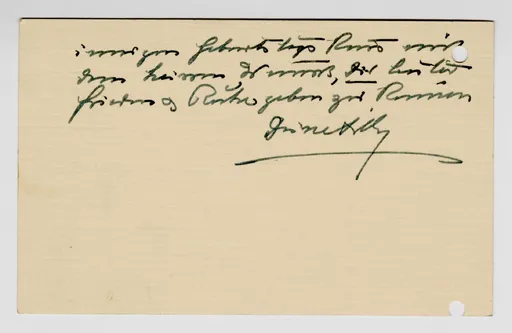 innigen Geburtstags Kuss mit
dem heissen Wunsch, die
Frieden & Ruhe geben zu können
Deine